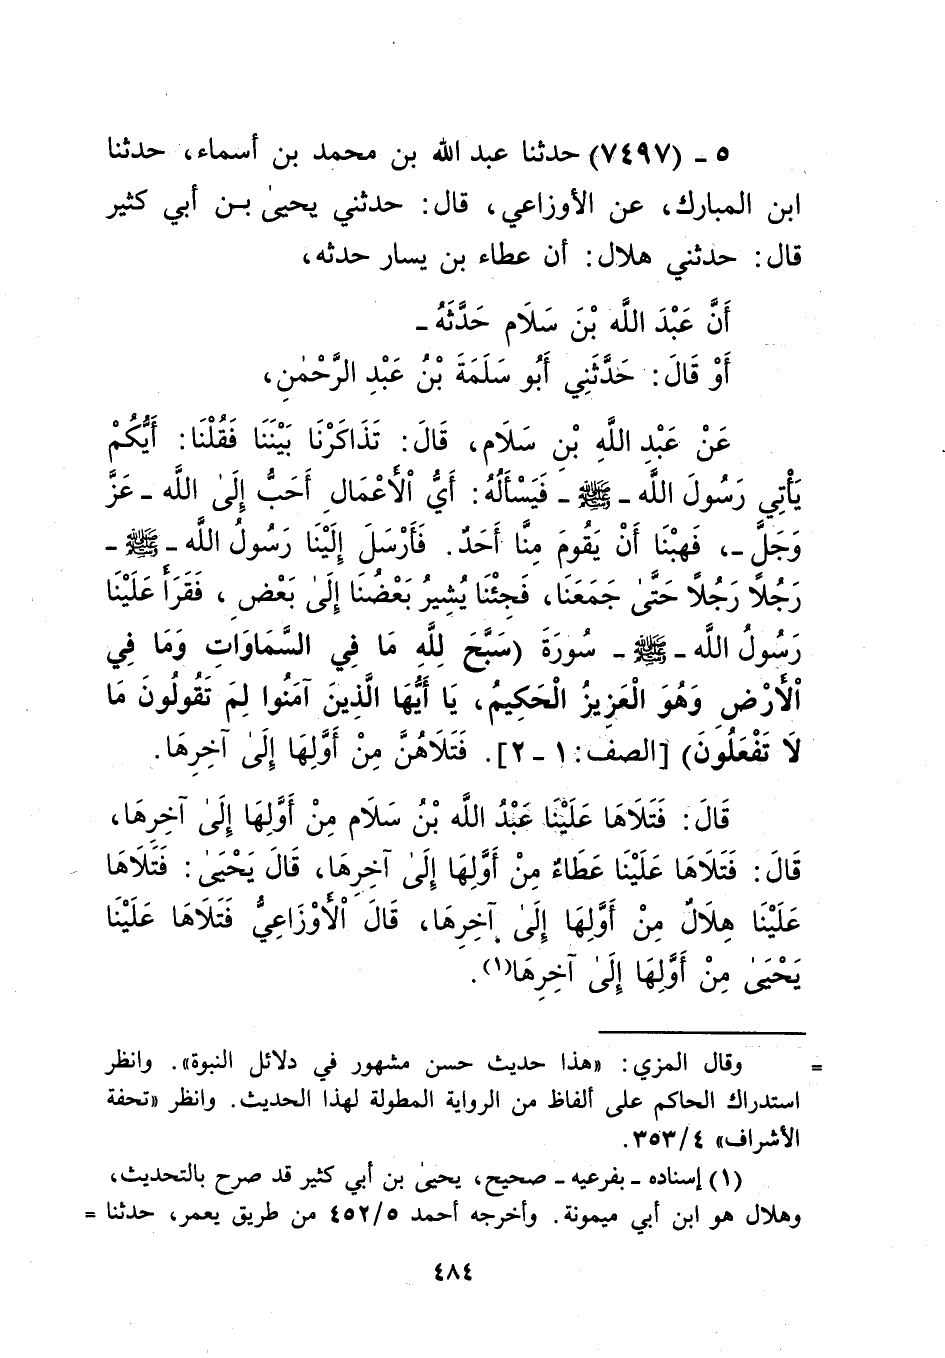 ٥ ـ (٧٤٩٧) حدثنا عبد الله بن محمد بن أسماء، حدثنا
ابن المبارك، عن الأوزاعي، قال: حدثني يحيىٰ بـن أبي كثير
قال: حدثني هلال: أن عطاء بن يسار حدثه،
أَنَّ عَبْدَ اللَّه بْنَ سَلَام حَدَّثَهُ ـ
أَوْ قَالَ: حَدَّثَنِي أَبُو سَلَمَةَ بْنُ عَبْدِ الرَّحْمٰنِ،
عَنْ عَبْدِ اللَّهِ بْنِ سَلَام، قَالَ: تَذَاكَرْنَا بَيْنَنَا فَقُلْنَا: أَيُّكُمْ
يَأْتِي رَسُولَ اللَّه ـ ﷺ ـ فَيَسْأَلُهُ: أَيُّ الْأَعْمَالِ أَحَبُّ إِلَىٰ اللَّه ـ عَزَّ
وَجَلَّ ـ، فَهِبْنَا أَنْ يَقُومَ مِنَّا أَحَدٌ. فَأَرْسَلَ إِلَيْنَا رَسُولُ اللَّه ـ ﷺ ـ
رَجُلًا رَجُلًا حَتَّىٰ جَمَعَنَا، فَجِئْنَا يُشِيرُ بَعْضُنَا إِلَىٰ بَعْضٍ، فَقَرَأَ عَلَيْنَا
رَسُولُ اللَّه ـ ﷺ ـ سُورَةَ (سَبَّحَ لِلَّهِ مَا فِي السَّمَاوَاتِ وَمَا فِي
الْأَرْضِ وَهُوَ الْعَزِيزُ الْحَكِيمُ، يَا أَيُّهَا الَّذِينَ آمَنُوا لِمَ تَقُولُونَ مَا
لَا تَفْعَلُونَ) [الصف: ١ ـ ٢]. فَتَلَاهُنَّ مِنْ أَوَّلِهَا إِلَىٰ آخِرِهَا.
قَالَ: فَتَلَاهَا عَلَيْنَا عَبْدُ اللَّه بْنُ سَلَام مِنْ أَوَّلِهَا إِلَىٰ آخِرِهَا،
قَالَ: فَتَلَاهَا عَلَيْنَا عَطَاءٌ مِنْ أَوَّلِهَا إِلَىٰ آخِرِهَا، قَالَ يَحْيَىٰ: فَتَلَاهَا
عَلَيْنَا هِلَالٌ مِنْ أَوَّلِهَا إِلَىٰ آخِرِهَا، قَالَ الْأَوْزَاعِيُّ فَتَلَاهَا عَلَيْنَا
يَحْيَىٰ مِنْ أَوَّلِهَا إِلَىٰ آخِرِهَا(١).
= وقال المزي: «هذا حديث حسن مشهور في دلائل النبوة». وانظر
استدراك الحاكم على ألفاظ من الرواية المطولة لهذا الحديث. وانظر «تحفة
الأشراف» ٤/ ٣٥٣.
(١) إسناده ـ بفرعيه ـ صحيح، يحيىٰ بن أبي كثير قد صرح بالتحديث،
وهلال هو ابن أبي ميمونة. وأخرجه أحمد ٥/ ٤٥٢ من طريق يعمر، حدثنا =
٤٨٤